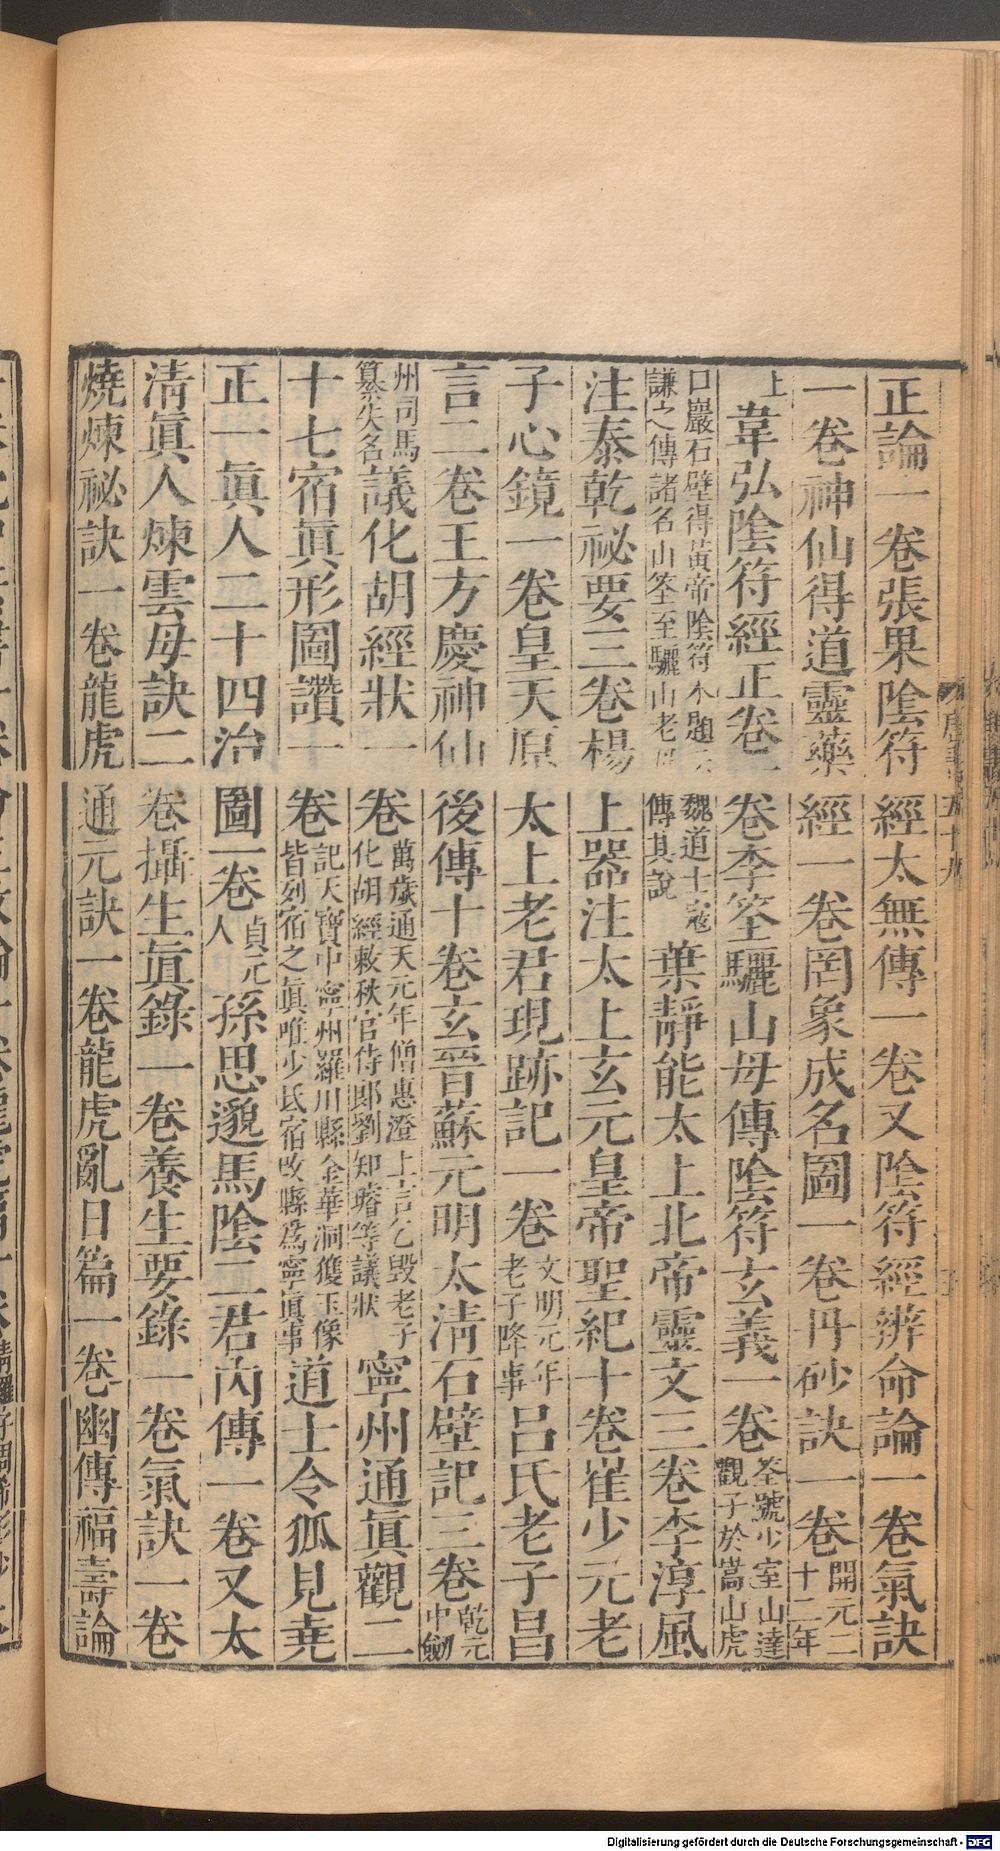 正論一卷張果陰符經太無傳一卷又陰符經辨命論一卷氣訣
一卷神仙得道靈藥經一卷罔象成名圖一卷丹砂訣一卷開元二十二年
上韋弘陰符經正卷一卷李筌驪山母傳陰符玄義一卷筌號少室山達觀子於嵩山虎
口巖石壁得黃帝陰符本題云魏道士寇謙之傳諸名山筌至驪山老母傳其說葉靜能太上北帝靈文三卷李淳風
注泰乾祕要三卷楊上器注太上玄元皇帝聖紀十卷崔少元老
子心鏡一卷皇天原太上老君現跡記一卷文明元年老子降事呂氏老子昌
言二卷王方慶神仙後傳十卷玄晉蘇元明太清石壁記三卷乾元中劒
州司馬纂失名議化胡經狀一卷萬歲通天元年僧惠澄上言乞毀老子化胡經敕秋官侍郎劉知璿等議狀寧州通眞觀二
十七宿眞形圖讚一卷記天寶中寧州羅川縣金華洞獲玉像皆列宿之眞唯少氐宿改縣爲寧眞事道士令狐見堯
正一眞人二十四治圖一卷貞元人孫思邈馬陰二君內傳一卷又太
清眞人煉雲母訣二卷攝生眞錄一卷養生要錄一卷氣訣一卷
燒煉祕訣一卷龍虎通元訣一卷龍虎亂日篇一卷幽傳福壽論
Digitalisierung gefördert durch die Deutsche Forschungsgemeinschaft - DFG